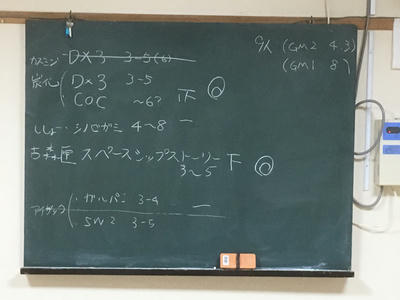 カスミン DX3 3-5(6)
炭化 DX3 3-5 正
CoC ~6?
ししょー シノビガミ 4~8 一
古森 スペースシップストーリー 下
3~5
アイザック ・ガルパン 3-4 一
・SW2 3-5
9人 (GM2 4.3)
(GM1 8)